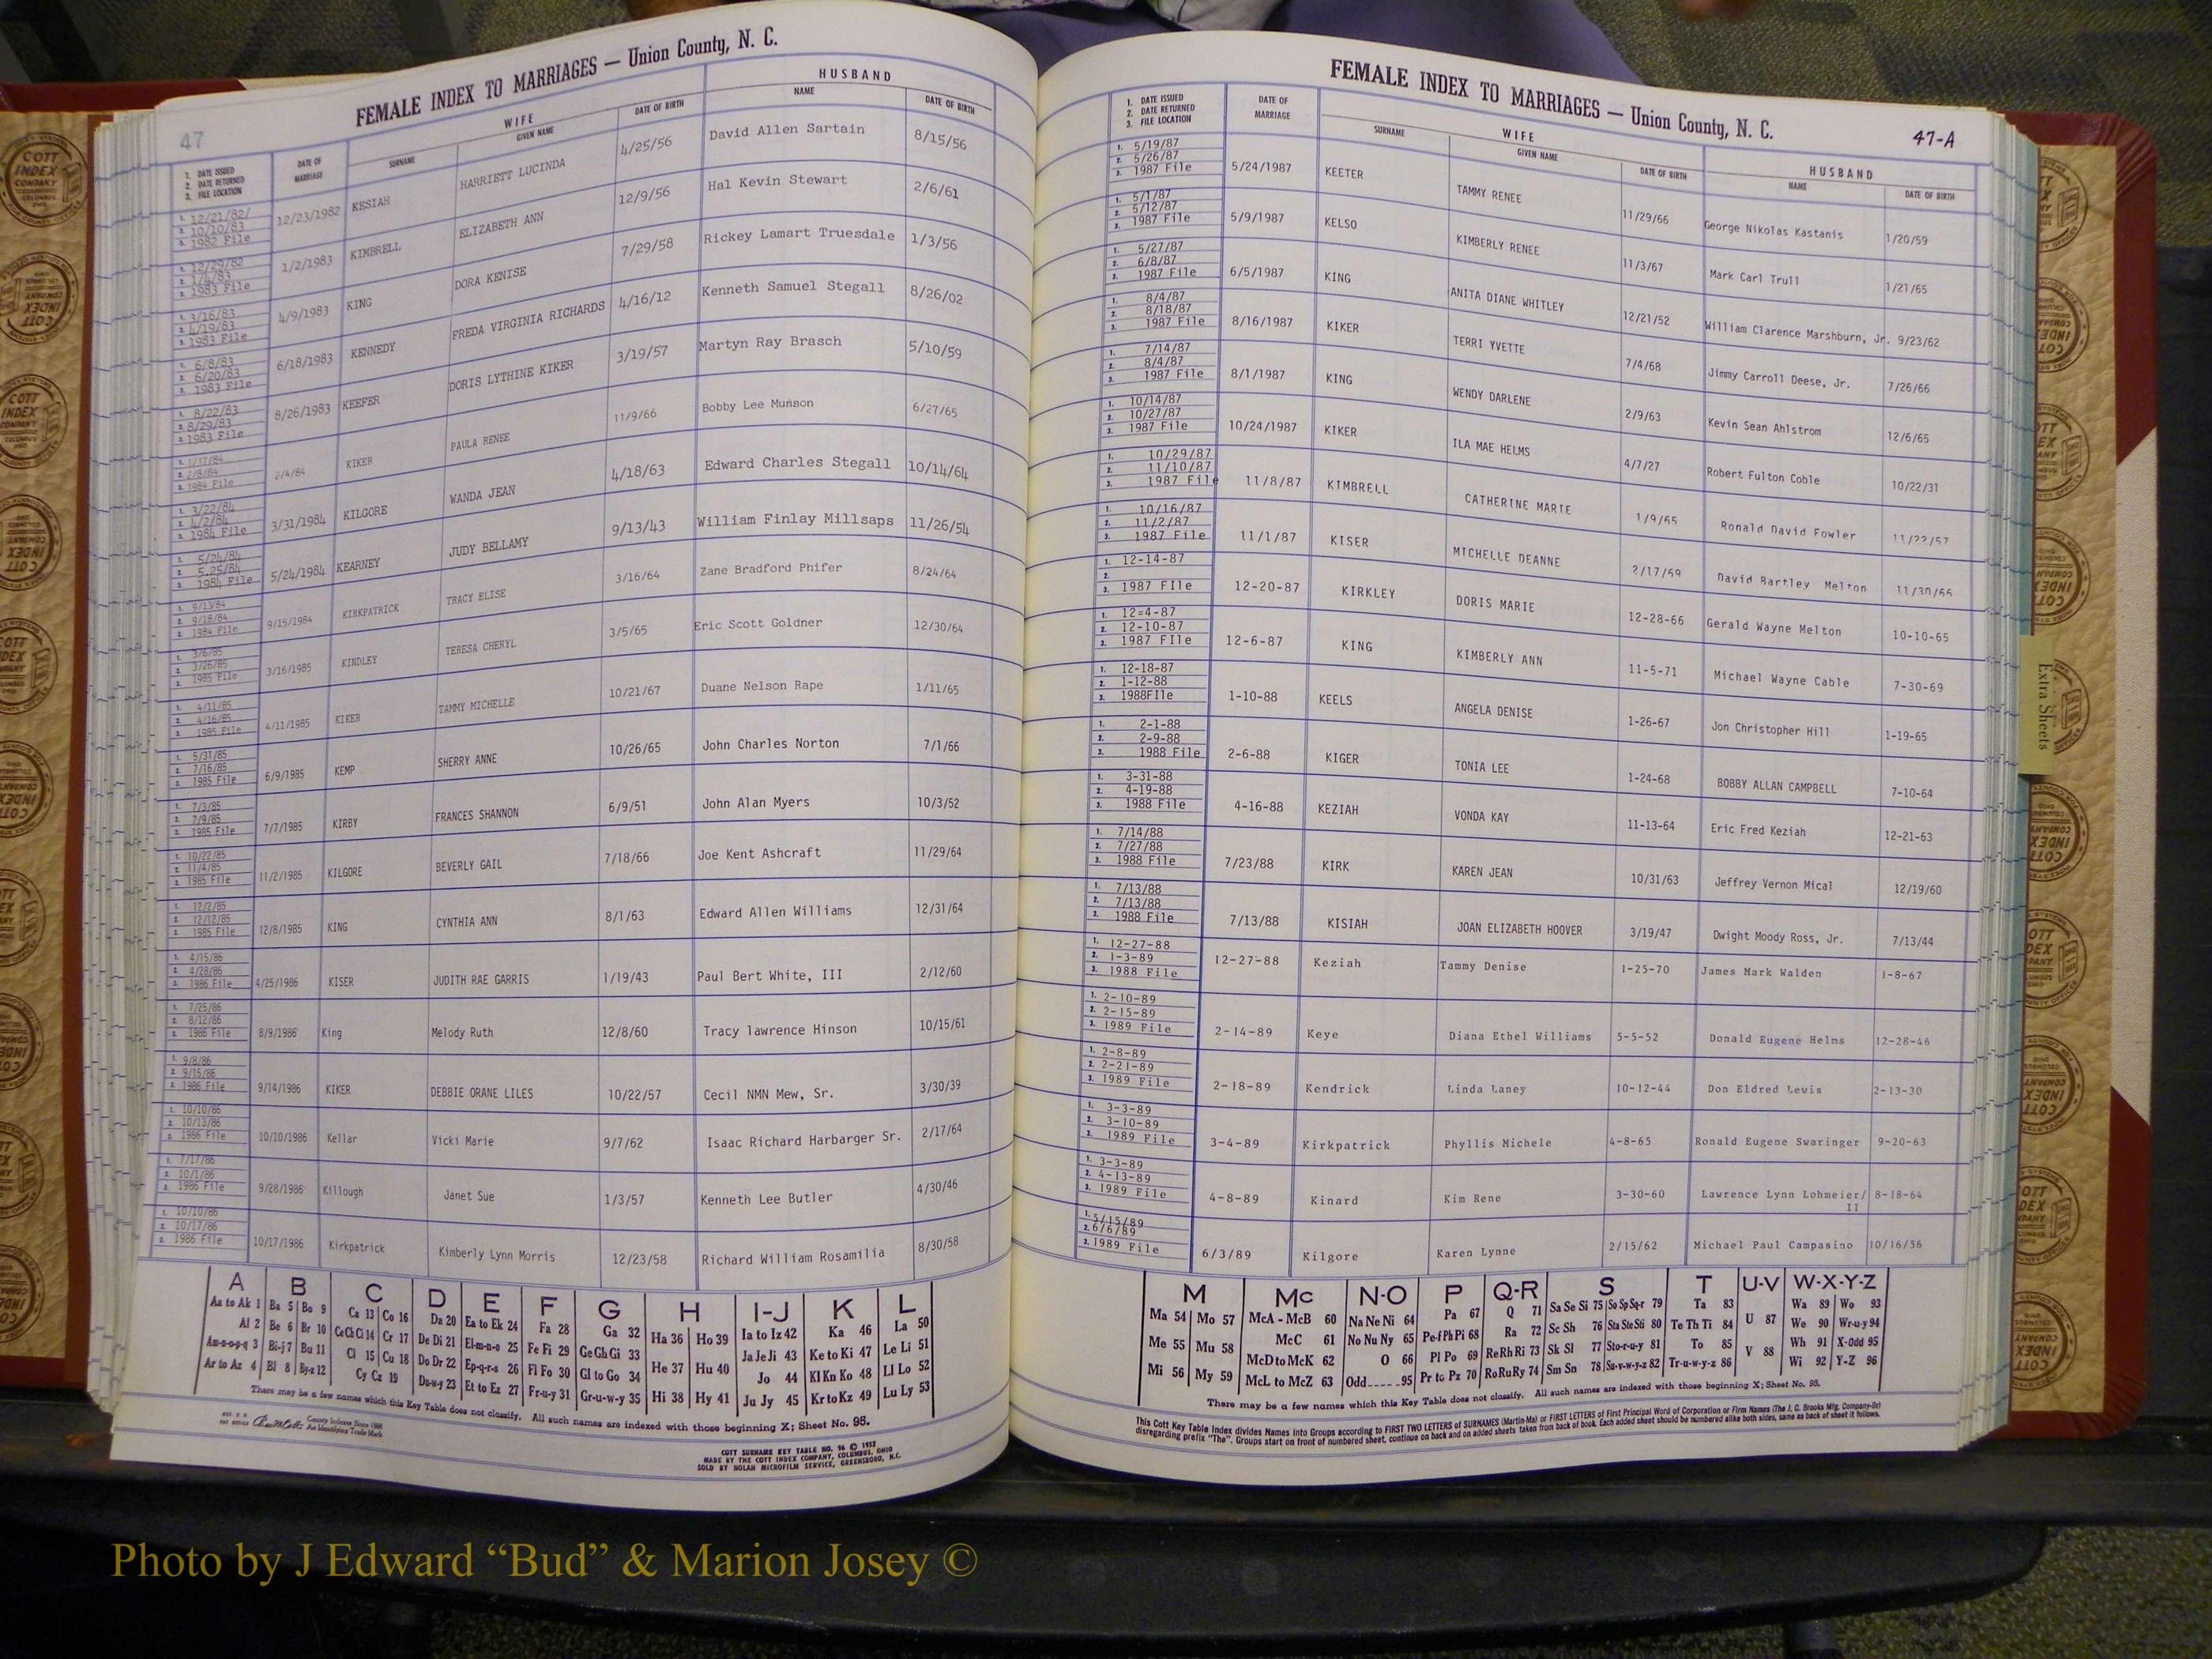 47
FEMALE INDEX TO MARRIAGES — Union County, N. C.
1. DATE ISSUED 2. DATE RETURNED 3. FILE LOCATION | DATE OF MARRIAGE | WIFE SURNAME | GIVEN NAME | DATE OF BIRTH | HUSBAND NAME | DATE OF BIRTH
1. 12/21/82/ 2. 10/10/83 3. 1982 File 12/23/1982 KESIAH HARRIETT LUCINDA 4/25/56 David Allen Sartain 8/15/56
1. 12/29/82 2. 1/4/83 3. 1983 File 1/2/1983 KIMBRELL ELIZABETH ANN 12/9/56 Hal Kevin Stewart 2/6/61
1. 3/16/83 2. 4/19/83 3. 1983 File 4/9/1983 KING DORA KENISE 7/29/58 Rickey Lamart Truesdale 1/3/56
1. 6/8/83 2. 6/20/83 3. 1983 File 6/18/1983 KENNEDY FREDA VIRGINIA RICHARDS 4/16/12 Kenneth Samuel Stegall 8/26/02
1. 8/22/83 2. 8/29/83 3. 1983 File 8/26/1983 KEEFER DORIS LYTHINE KIKER 3/19/57 Martyn Ray Brasch 5/10/59
1. 1/17/84 2. 2/8/84 3. 1984 File 2/4/84 KIKER PAULA RENEE 11/9/66 Bobby Lee Munson 6/27/65
1. 3/22/84 2. 4/2/84 3. 1984 File 3/31/1984 KILGORE WANDA JEAN 4/18/63 Edward Charles Stegall 10/14/64
1. 5/24/84 2. 5.25/84 3. 1984 File 5/24/1984 KEARNEY JUDY BELLAMY 9/13/43 William Finlay Millsaps 11/26/54
1. 9/13/84 2. 9/18/84 3. 1984 File 9/15/1984 KIRKPATRICK TRACY ELISE 3/16/64 Zane Bradford Phifer 8/24/64
1. 3/6/85 2. 3/26/85 3. 1985 File 3/16/1985 KINDLEY TERESA CHERYL 3/5/65 Eric Scott Goldner 12/30/64
1. 4/11/85 2. 4/16/85 3. 1985 File 4/11/1985 KIKER TAMMY MICHELLE 10/21/67 Duane Nelson Rape 1/11/65
1. 5/31/85 2. 7/16/85 3. 1985 File 6/9/1985 KEMP SHERRY ANNE 10/26/65 John Charles Norton 7/1/66
1. 7/3/85 2. 7/9/85 3. 1985 File 7/7/1985 KIRBY FRANCES SHANNON 6/9/51 John Alan Myers 10/3/52
1. 10/22/85 2. 11/4/85 3. 1985 File 11/2/1985 KILGORE BEVERLY GAIL 7/18/66 Joe Kent Ashcraft 11/29/64
1. 12/2/85 2. 12/12/85 3. 1985 File 12/8/1985 KING CYNTHIA ANN 8/1/63 Edward Allen Williams 12/31/64
1. 4/15/86 2. 4/28/86 3. 1986 File 4/25/1986 KISER JUDITH RAE GARRIS 1/19/43 Paul Bert White, III 2/12/60
1. 7/25/86 2. 8/12/86 3. 1986 File 8/9/1986 King Melody Ruth 12/8/60 Tracy lawrence Hinson 10/15/61
1. 9/8/86 2. 9/15/86 3. 1986 File 9/14/1986 KIKER DEBBIE ORANE LILES 10/22/57 Cecil NMN Mew, Sr. 3/30/39
1. 10/10/86 2. 10/13/86 3. 1986 File 10/10/1986 Kellar Vicki Marie 9/7/62 Isaac Richard Harbarger Sr. 2/17/64
1. 7/17/86 2. 10/1/86 3. 1986 File 9/28/1986 Killough Janet Sue 1/3/57 Kenneth Lee Butler 4/30/46
1. 10/10/86 2. 10/17/86 3. 1986 File 10/17/1986 Kirkpatrick Kimberly Lynn Morris 12/23/58 Richard William Rosamilia 8/30/58
A B C D E F G H I-J K L
Aa to Ak 1 Ba 5 Bo 9 Ca 13 Co 16 Da 20 Ea to Ek 24 Fa 28 Ga 32 Ha 36 Ho 39 Ia to Iz 42 Ka 46 La 50
Al 2 Be 6 Br 10 Ce Ch Ci 14 Cr 17 De Di 21 El-m-n-o 25 Fe Fi 29 Ge Gh Gi 33 He 37 Hu 40 Ja Je Ji 43 Ke to Ki 47 Le Li 51
Am-n-o-p-q 3 Bi-j 7 Bu 11 Cl 15 Cu 18 Do Dr 22 Ep-q-r-s 26 Fl Fo 30 Gl to Go 34 Hi 38 Hy 41 Jo 44 Kl Kn Ko 48 Ll Lo 52
Ar to Az 4 Bl 8 By-z 12 Cy Cz 19 Du-w-y 23 Et to Ez 27 Fr-u-y 31 Gr-u-w-y 35 Ju Jy 45 Kr to Kz 49 Lu Ly 53
There may be a few names which this Key Table does not classify. All such names are indexed with those beginning X; Sheet No. 95.
County Indexes Since 1888
An Identifying Trade Mark
COTT SURNAME KEY TABLE NO. 96 © 1952
MADE BY THE COTT INDEX COMPANY, COLUMBUS, OHIO
SOLD BY NOLAN MICROFILM SERVICE, GREENSBORO, N.C.
FEMALE INDEX TO MARRIAGES — Union County, N. C.
47-A
1. DATE ISSUED 2. DATE RETURNED 3. FILE LOCATION | DATE OF MARRIAGE | WIFE SURNAME | GIVEN NAME | DATE OF BIRTH | HUSBAND NAME | DATE OF BIRTH
1. 5/19/87 2. 5/26/87 3. 1987 File 5/24/1987 KEETER TAMMY RENEE 11/29/66 George Nikolas Kastanis 1/20/59
1. 5/1/87 2. 5/12/87 3. 1987 File 5/9/1987 KELSO KIMBERLY RENEE 11/3/67 Mark Carl Trull 1/21/65
1. 5/27/87 2. 6/8/87 3. 1987 File 6/5/1987 KING ANITA DIANE WHITLEY 12/21/52 William Clarence Marshburn, Jr. 9/23/62
1. 8/4/87 2. 8/18/87 3. 1987 File 8/16/1987 KIKER TERRI YVETTE 7/4/68 Jimmy Carroll Deese, Jr. 7/26/66
1. 7/14/87 2. 8/4/87 3. 1987 File 8/1/1987 KING WENDY DARLENE 2/9/63 Kevin Sean Ahlstrom 12/6/65
1. 10/14/87 2. 10/27/87 3. 1987 File 10/24/1987 KIKER ILA MAE HELMS 4/7/27 Robert Fulton Coble 10/22/31
1. 10/29/87 2. 11/10/87 3. 1987 File 11/8/87 KIMBRELL CATHERINE MARIE 1/9/65 Ronald David Fowler 11/22/57
1. 10/16/87 2. 11/2/87 3. 1987 File 11/1/87 KISER MICHELLE DEANNE 2/17/69 David Bartley Melton 11/30/65
1. 12-14-87 2. 3. 1987 FIle 12-20-87 KIRKLEY DORIS MARIE 12-28-66 Gerald Wayne Melton 10-10-65
1. 12=4-87 2. 12-10-87 3. 1987 FIle 12-6-87 KING KIMBERLY ANN 11-5-71 Michael Wayne Cable 7-30-69
1. 12-18-87 2. 1-12-88 3. 1988FIle 1-10-88 KEELS ANGELA DENISE 1-26-67 Jon Christopher Hill 1-19-65
1. 2-1-88 2. 2-9-88 3. 1988 File 2-6-88 KIGER TONIA LEE 1-24-68 BOBBY ALLAN CAMPBELL 7-10-64
1. 3-31-88 2. 4-19-88 3. 1988 File 4-16-88 KEZIAH VONDA KAY 11-13-64 Eric Fred Keziah 12-21-63
1. 7/14/88 2. 7/27/88 3. 1988 File 7/23/88 KIRK KAREN JEAN 10/31/63 Jeffrey Vernon Mical 12/19/60
1. 7/13/88 2. 7/13/88 3. 1988 File 7/13/88 KISIAH JOAN ELIZABETH HOOVER 3/19/47 Dwight Moody Ross, Jr. 7/13/44
1. 12-27-88 2. 1-3-89 3. 1988 File 12-27-88 Keziah Tammy Denise 1-25-70 James Mark Walden 1-8-67
1. 2-10-89 2. 2-15-89 3. 1989 File 2-14-89 Keye Diana Ethel Williams 5-5-52 Donald Eugene Helms 12-28-46
1. 2-8-89 2. 2-21-89 3. 1989 File 2-18-89 Kendrick Linda Laney 10-12-44 Don Eldred Lewis 2-13-30
1. 3-3-89 2. 3-10-89 3. 1989 File 3-4-89 Kirkpatrick Phyllis Michele 4-8-65 Ronald Eugene Swaringer 9-20-63
1. 3-3-89 2. 4-13-89 3. 1989 File 4-8-89 Kinard Kim Rene 3-30-60 Lawrence Lynn Lohmeier/ II 8-18-64
1. 5/15/89 2. 6/6/89 3. 1989 File 6/3/89 Kilgore Karen Lynne 2/15/62 Michael Paul Campasino 10/16/56
M Mc N-O P Q-R S T U-V W-X-Y-Z
Ma 54 Mo 57 McA - McB 60 Na Ne Ni 64 Pa 67 Q 71 Sa Se Si 75 So Sp Sq-r 79 Ta 83 U 87 Wa 89 Wo 93
Me 55 Mu 58 McC 61 No Nu Ny 65 Pe-f Ph Pi 68 Ra 72 Sc Sh 76 Sta Ste Sti 80 Te Th Ti 84 V 88 We 90 Wr-u-y 94
Mi 56 My 59 McD to McK 62 O 66 Pl Po 69 Re Rh Ri 73 Sk Sl 77 Sto-r-u-y 81 To 85 Wh 91 X-Odd 95
McL to McZ 63 Odd 95 Pr to Pz 70 Ro Ru Ry 74 Sm Sn 78 Su-v-w-y-z 82 Tr-u-w-y-z 86 Wi 92 Y-Z 96
There may be a few names which this Key Table does not classify. All such names are indexed with those beginning X; Sheet No. 95.
This Cott Key Table Index divides Names into Groups according to FIRST TWO LETTERS of SURNAMES (Martin-Ma) or FIRST LETTERS of First Principal Word of Corporation or Firm Names (The J. C. Brooks Mfg. Company-Br)
disregarding prefix "The". Groups start on front of numbered sheet, continue on back and on added sheets taken from back of book. Each added sheet should be numbered alike both sides, same as back of sheet it follows.
Extra Sheets
COTT INDEX COMPANY
Photo by J Edward “Bud” & Marion Josey ©